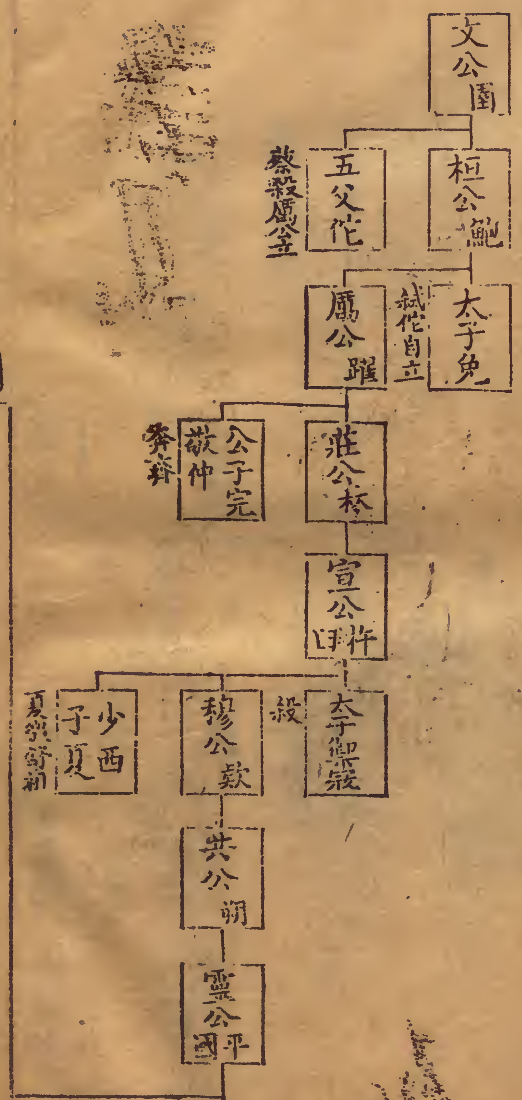 文公圉
桓公鮑
五父佗
蔡殺厲公立
太子免
弑佗自立
厲公躍
莊公林
公子完
敬仲
奔齊
宣公杵臼
太子禦寇
殺
穆公款
少西
子夏
夏徵舒祖
共公朔
靈公平國